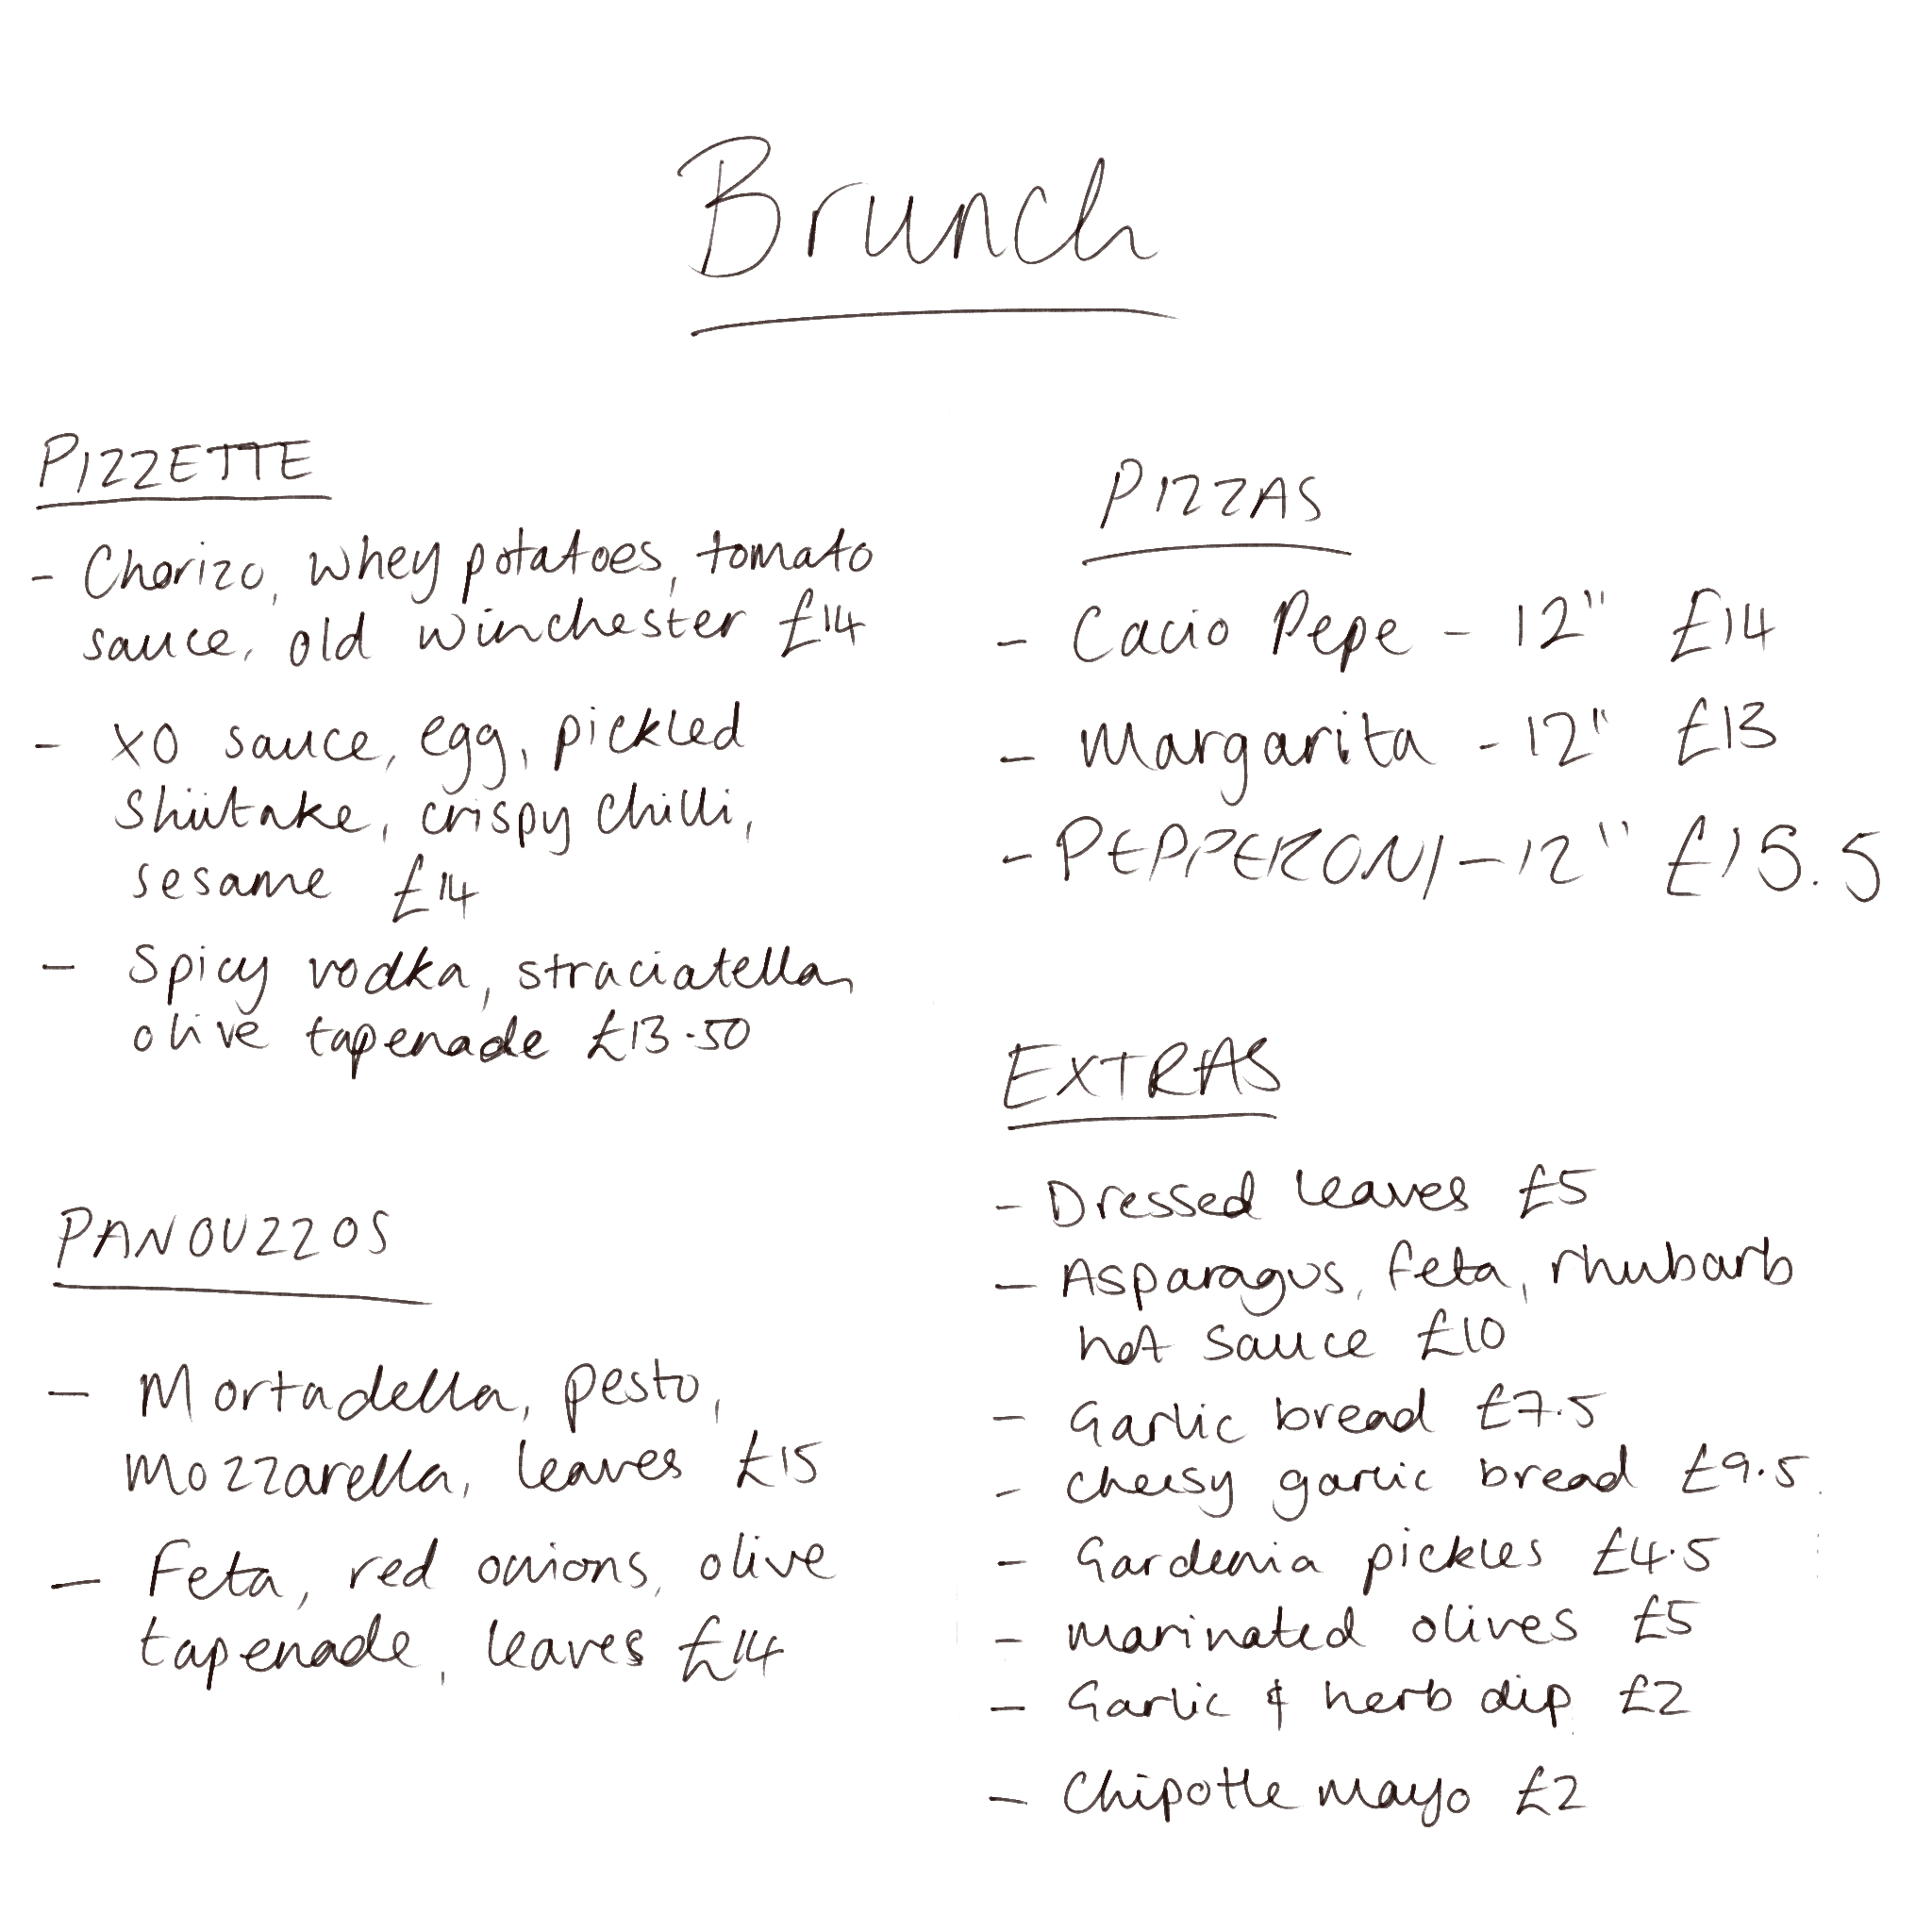 Brunch
PIZZETTE
- Chorizo, whey potatoes, tomato
sauce, old winchester £14
- XO sauce, egg, pickled
shiitake, crispy chilli,
sesame £14
- Spicy vodka, straciatella,
olive tapenade £13.50
PANOUZZOS
- Mortadella, pesto,
Mozzarella, leaves £15
- Feta, red onions, olive
tapenade, leaves £14
PIZZAS
- Cacio Pepe - 12" £14
- Margarita - 12" £13
- PEPPERONI - 12" £15.5
EXTRAS
- Dressed leaves £5
- Asparagus, feta, rhubarb
hot sauce £10
- Garlic bread £7.5
- cheesy garlic bread £9.5
- Gardenia pickles £4.5
- marinated olives £5
- Garlic & herb dip £2
- Chipotle mayo £2